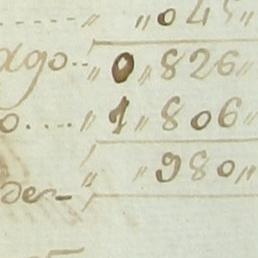 „ „ 045 „
ago.. „ 0 „ 826 „
o.... „ 1 „ 806 „
„ „ 980 „
der_ „